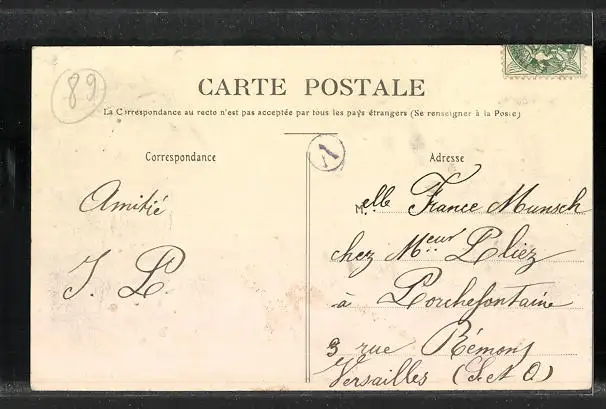 89
CARTE POSTALE
La Correspondance au recto n'est pas acceptée par tous les pays étrangers (Se renseigner à la Poste)
1
Correspondance
Adresse
Amitié
J. P.
Melle France Munsch
chez Meur Pliez
à Porchefontaine
3 rue Rémont
Versailles (S. et O)